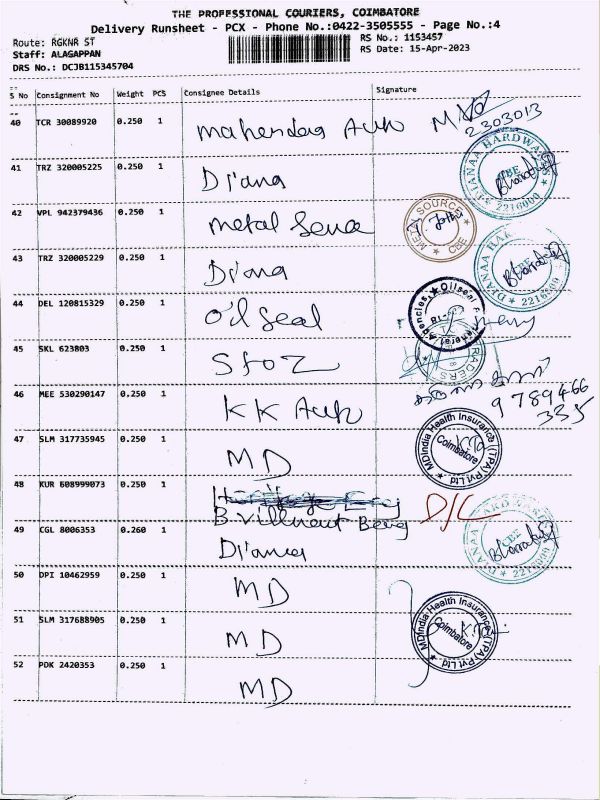 THE PROFESSIONAL COURIERS, COIMBATORE
Delivery Runsheet - PCX - Phone No.:0422-3505555 - Page No.:4
Route: RGKNR ST
RS No.: 1153457
Staff: ALAGAPPAN
RS Date: 15-Apr-2023
DRS No.: DCJB115345704
S No Consignment No Weight PCS Consignee Details Signature
40 TCR 30089920 0.250 1 Mahendag Auto
2303013
41 TRZ 320005225 0.250 1 Diana
DIANAA HARDWARE CBE 2216000
42 VPL 942379436 0.250 1 metal Sena
METAL SOURCE CBE
43 TRZ 320005229 0.250 1 Diana
DIANAA HAR CBE 2216000
44 DEL 120815329 0.250 1 oil seal
Oilseal Agencies
45 SKL 623803 0.250 1
TRADERS
46 MEE 530290147 0.250 1 KK Auto
9789466
335
47 SLM 317735945 0.250 1 MD
MDIndia Health Insurance (TPA) Pvt Ltd Coimbatore
48 KUR 608999073 0.250 1 D/L
49 CGL 8006353 0.260 1 Diana
DIANAA HARDWARE CBE 2216000
50 DPI 10462959 0.250 1 MD
51 SLM 317688905 0.250 1 MD
MDIndia Health Insurance (TPA) Pvt Ltd Coimbatore
52 PDK 2420353 0.250 1 MD